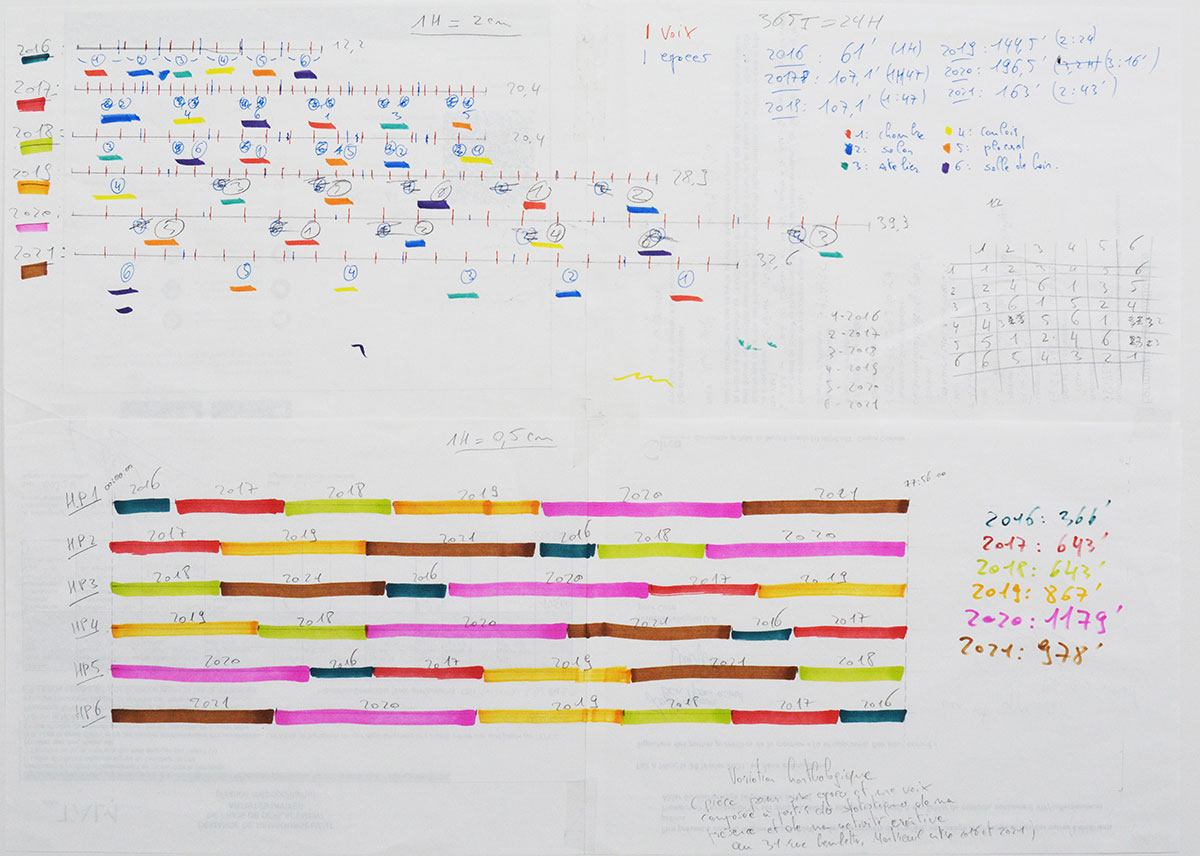 1H = 2cm
365J = 24H
1 Voix
1 espaces :
2016 : 61' (1H)
2019 : 144,5' (2:24)
2017 : 107,1' (1H47)
2020 : 196,5' (3:16')
2018 : 107,1' (1:47)
2021 : 163' (2:43')
1 : chambre
4 : couloir
2 : salon
5 : placard
3 : atelier
6 : salle de bain.
2016 : 12,2
1 2 3 4 5 6
2017 : 20,4
2 4 6 1 3 5
2018 : 20,4
3 6 1 5 2 4
2019 28,9
4 3 5 6 1 2
2020. 39,3
5 1 2 4 6 3
2021 : 32,6
6 5 4 3 2 1
12
1 2 3 4 5 6
1 1 2 3 4 5 6
2 2 4 6 1 3 5
3 3 6 1 5 2 4
4 4 3 5 6 1 2
5 5 1 2 4 6 3
6 6 5 4 3 2 1
1-2016
2-2017
3-2018
4-2019
5-2020
6-2021
1H = 0,5cm
00:00:00
77:56:00
HP1 2016 2017 2018 2019 2020 2021
HP2 2017 2019 2021 2016 2018 2020
HP3 2018 2021 2016 2020 2017 2019
HP4 2019 2018 2020 2021 2016 2017
HP5 2020 2016 2017 2019 2021 2018
HP6 2021 2020 2019 2018 2017 2016
2016 : 366'
2017 : 643'
2018 : 643'
2019 : 867'
2020 : 1179'
2021 : 978'
Variation horthologique
(pièce pour six espaces et une voix
composée à partir des statistiques de ma
présence et de mon activité créative
au 31 rue Montreuil entre 2016 et 2021)